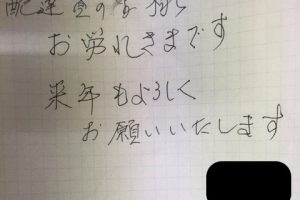 配達員の皆様
お労れさまです
来年もよろしく
お願いいたします